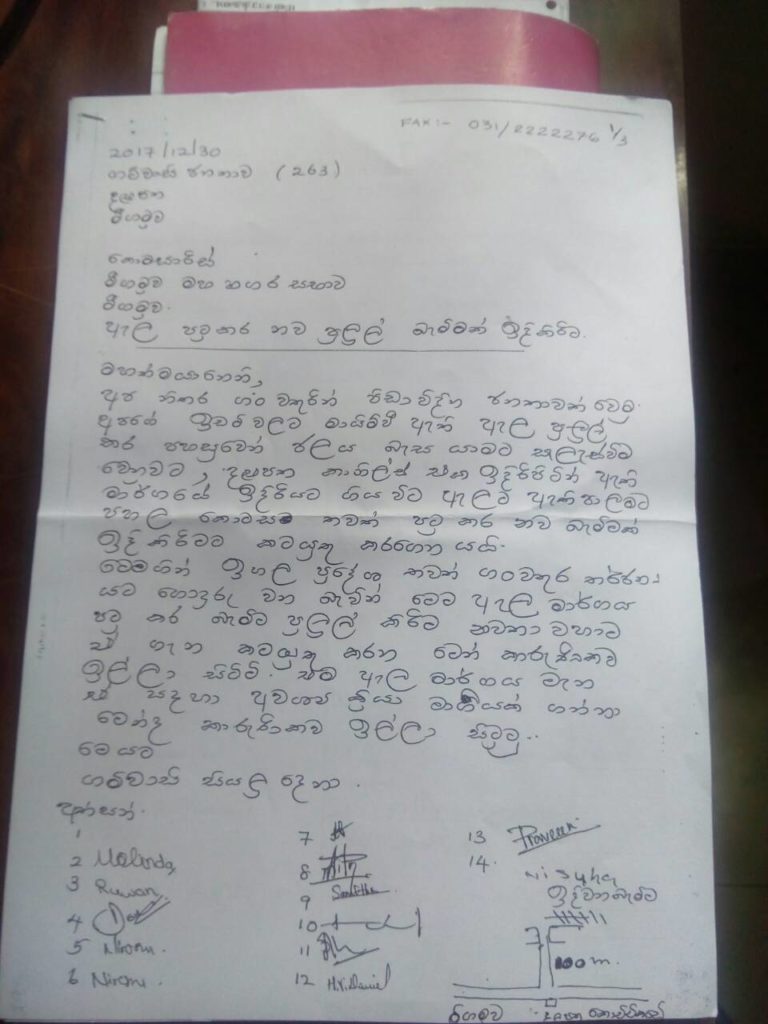 FAX:- 031/2222276 1/3
2017/12/30
ගම්වාසි ජනතාව (263)
දළුපත
මීගමුව
කොමසාරිස්
මීගමුව මහ නගර සභාව
මීගමුව.
ඇල පටුකර නව පුලුල් බැම්මක් ඉදිකිරිම.
මහත්මයාණෙනි,
අප නිතර ගංවතුරින් පීඩාවිදින ජනතාවක් වෙමු.
අපගේ ඉඩම් වලට මායිම්ව ඇති ඇල පුලුල්
කර පහසුවෙන් ජලය බැස යාමට සැලැස්වීම
වෙනුවට, දළුපත කාගිල්ස් එක ඉදිරිපිටින් ඇති
මාර්ගයේ ඉදිරියට ගිය විට ඇලට ඇති පාලමට
පහල කොටසම තවත් පටු කර නව බැම්මක්
ඉදි කිරීමට කටයුතු කරගෙන යයි.
මෙමගින් ඉහල ප්‍රදේශ තවත් ගංවතුර තර්ජන
යට ගොදුරු වන බැවින් මෙම ඇල මාර්ගය
පටු කර බැම්ම පුලුල් කිරීම නවතා වහාම
ඒ ගැන කටයුතු කරන මෙන් කාරුණිකව
ඉල්ලා සිටිමු. එම ඇල මාර්ගය මැන
ඒ සඳහා අවශ්‍ය ක්‍රියා මාර්ගයක් ගන්නා
මෙන්ද කාරුණිකව ඉල්ලා සිටිමු..
මෙයට
ගම්වාසි සියලු දෙනා.
අත්සන්.
1
2 Malinda
3 Ruwan
4
5 Niromi.
6 Niromi.
7
8
9
10
11
12 H.V. Daniel
13 Praveen
14.
ඉදිවනබැම්ම
100 m.
මීගමුව
දළුපත